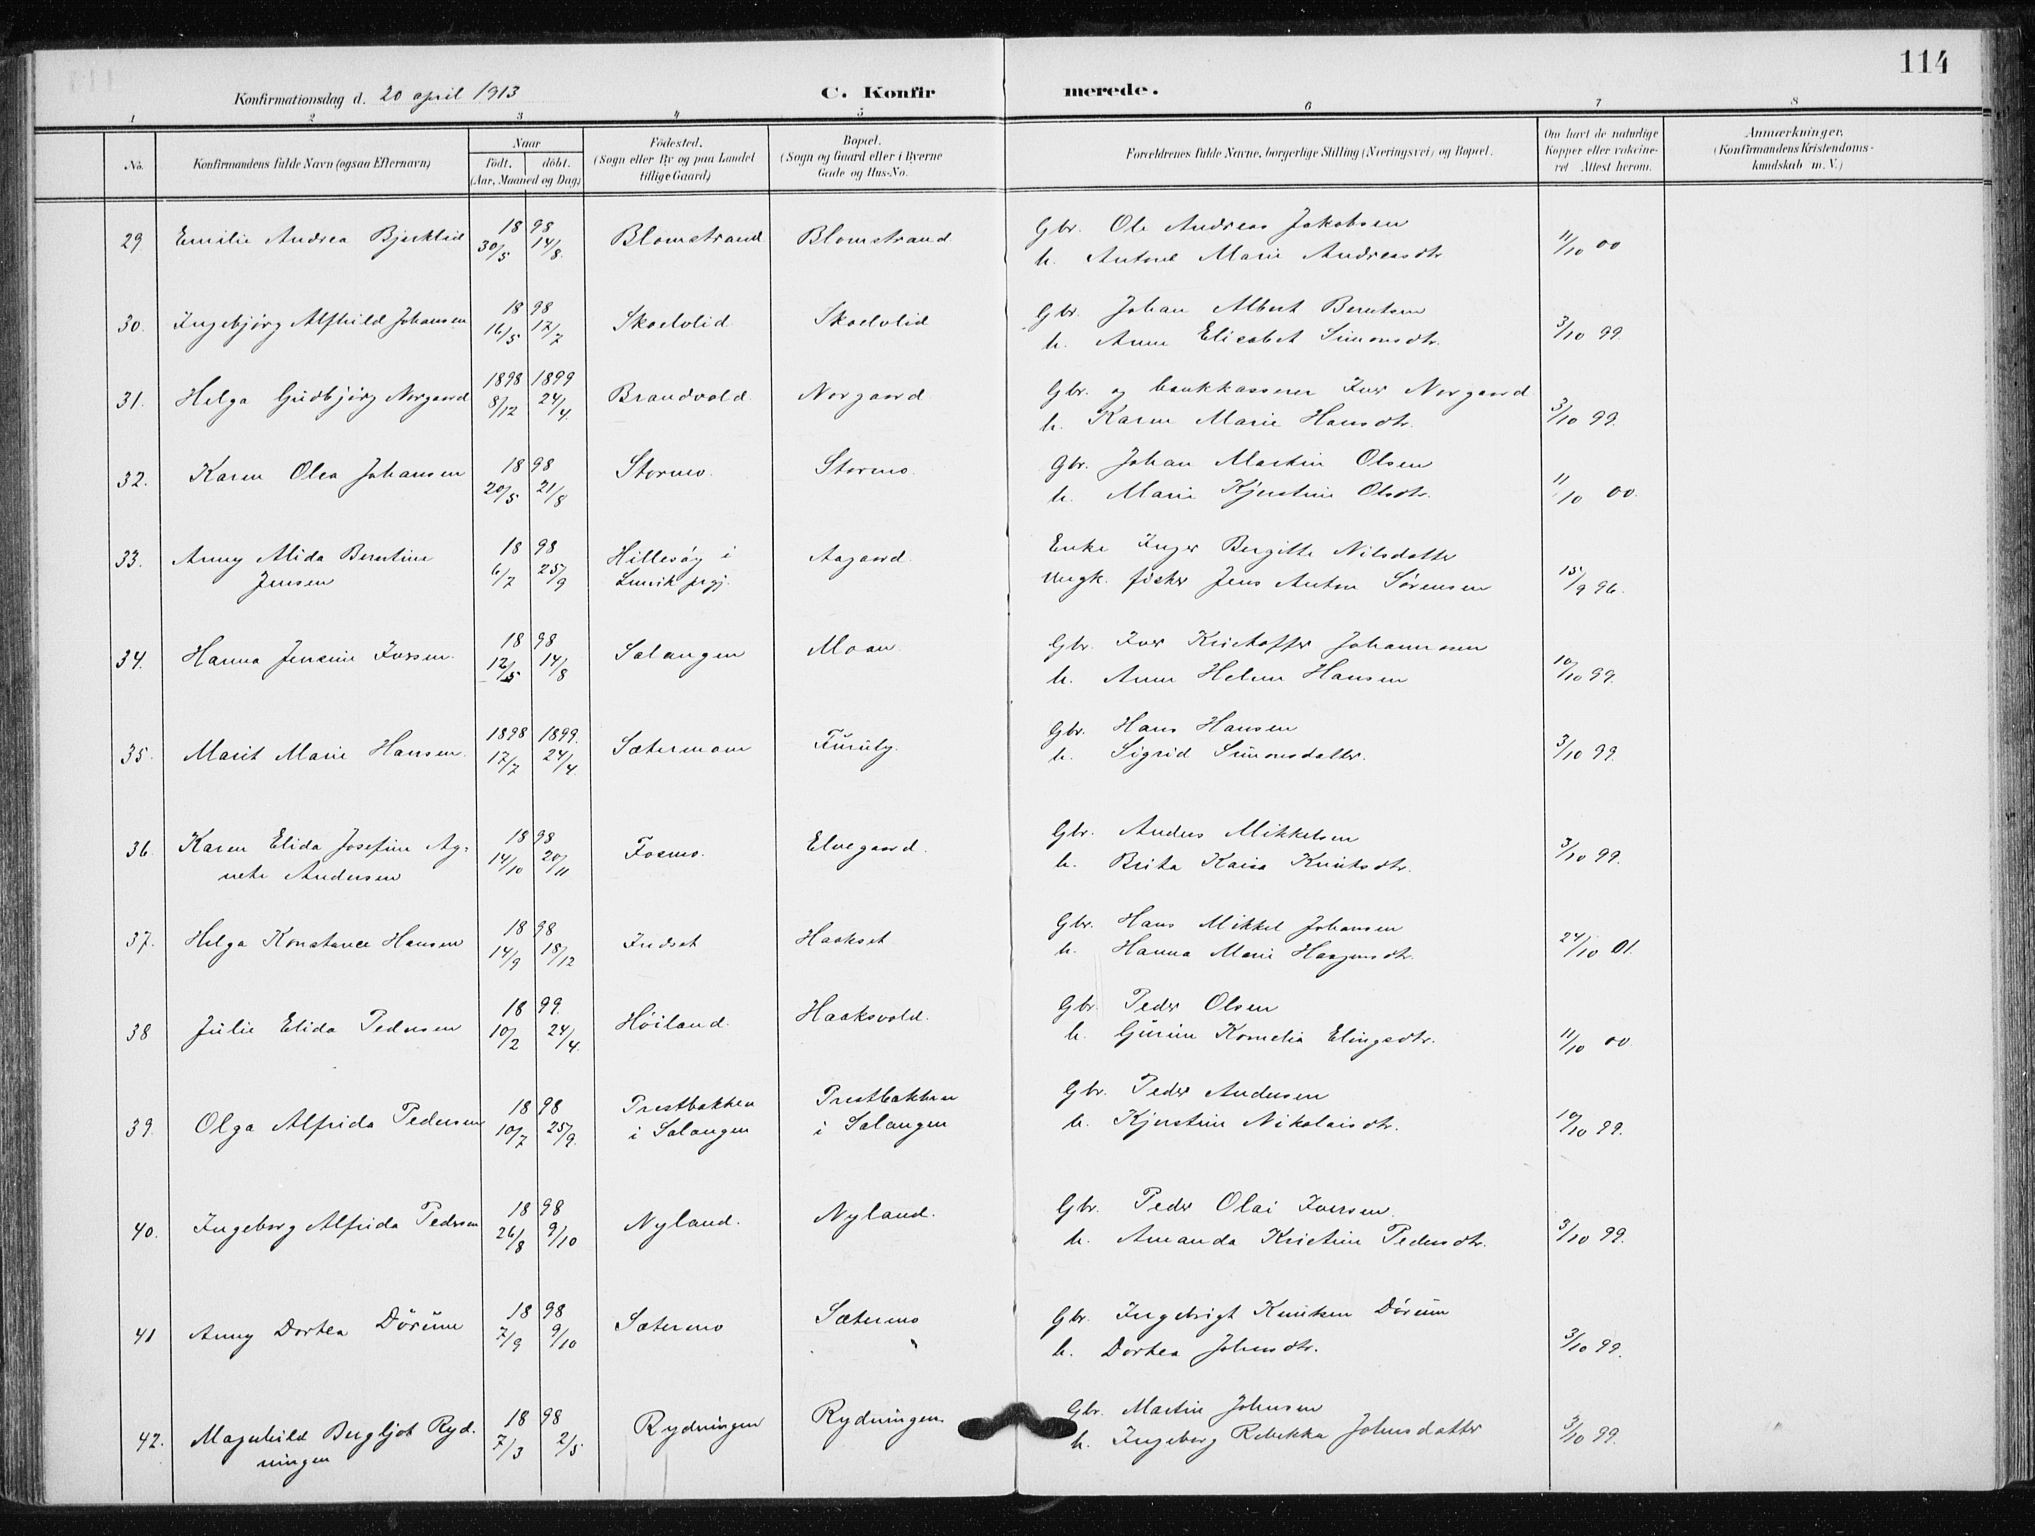 114
Konfirmationsdag d. 20 april 1913
C. Konfirmerede.
1 2 3 4 5 6 7 8
No. Konfirmandens fulde Navn (ogsaa Efternavn) Naar født, døbt. (Aar, Maaned og Dag) Fødested. (Sogn eller By og paa Landet tillige Gaard) Bopæl. (Sogn og Gaard eller i Byerne Gade og Hus-No. Forældrenes fulde Navne, borgerlige Stilling (Næringsvei) og Bopæl. Om havt de naturlige Kopper eller vakcineret Attest herom. Anmærkninger. (Konfirmandens Kristendomskundskab m. V.)
29 Emilie Andrea Bjerklid 1898 30/5 14/8. Blomstrand Blomstrand Gbr. Ole Andreas Jakobsen 11/10 00
h. Antone Marie Andreasdtr
30. Ingebjørg Alfhild Johansen 1898 16/5 17/7 Skoelvlid Skoelvlid Gbr. Johan Albert Berntsen 3/10 99.
h. Anne Elisabet Simonsdtr.
31. Helga Gudbjørg Norgaard 1898 8/12 1899 24/4. Brandvold Norgaard Gbr. og bankkasserer Iver Norgaard 3/10 99.
h. Karen Marie Hansdtr.
32. Karen Olea Johansen 1898 20/5 21/8 Stormo. Stormo. Gbr. Johan Martin Olsen 11/10 00.
h. Marie Kjerstine Olsdtr.
33. Anny Alida Berntine 1898 6/7 25/9 Hillesøy i Aagaard. Enke Inger Bergitte Nilsdatter 15/9 96.
Jensen Lenvik prgj. ungk. fisker Jens Anton Sørensen
34. Hanna Jensine Iversen. 1898 12/5 14/8 Salangen Moan. Gbr. Iver Kristoffer Johannesen 10/10 99.
h. Anne Helene Hansen
35. Marit Marie Hansen. 1898 17/7 1899. 24/4. Sætermoen Furuly. Gbr. Hans Hansen 3/10 99.
h. Sigrid Simonsdatter.
36. Karen Elida Josefine Ag- 1898 14/10 20/11 Fosmo. Elvegaard. Gbr. Anders Mikkelsen 3/10 99.
nete Andersen h. Brita Kaisa Knutsdtr.
37. Helga Konstance Hansen 1898 14/9 18/12 Indset Haakset Gbr. Hans Mikkel Johansen 24/10 01.
h. Hanna Marie Haagensdtr.
38 Julie Elida Pedersen 1899. 10/2 24/4. Høiland. Haaksvold. Gbr. Peder Olsen 11/10 00
h. Gurine Kornelia Elingsdtr.
39. Olga Alfrida Pedersen 1898 10/7 25/9. Prestbakken Prestbakken Gbr. Peder Andersen 10/10 99.
i Salangen i Salangen h. Kjerstine Nikolaisdtr.
40. Ingeborg Alfrida Pedersen 1898 26/8 9/10 Nyland. Nyland. Gbr. Peder Olai Iversen. 3/10 99.
h. Amanda Kristine Pedersdtr.
41 Anny Dortea Dørum 1898 7/9 9/10 Sætermo Sætermo Gbr. Ingebrigt Knutsen Dørum 3/10 99.
" h. Dortea Johnsdtr.
42. Magnhild Bergljot Ryd- 1898 7/3 2/5 Rydningen Rydningen. Gbr. Martin Johnsen 3/10 99.
ningen h. Ingeborg Rebekka Johnsdatter